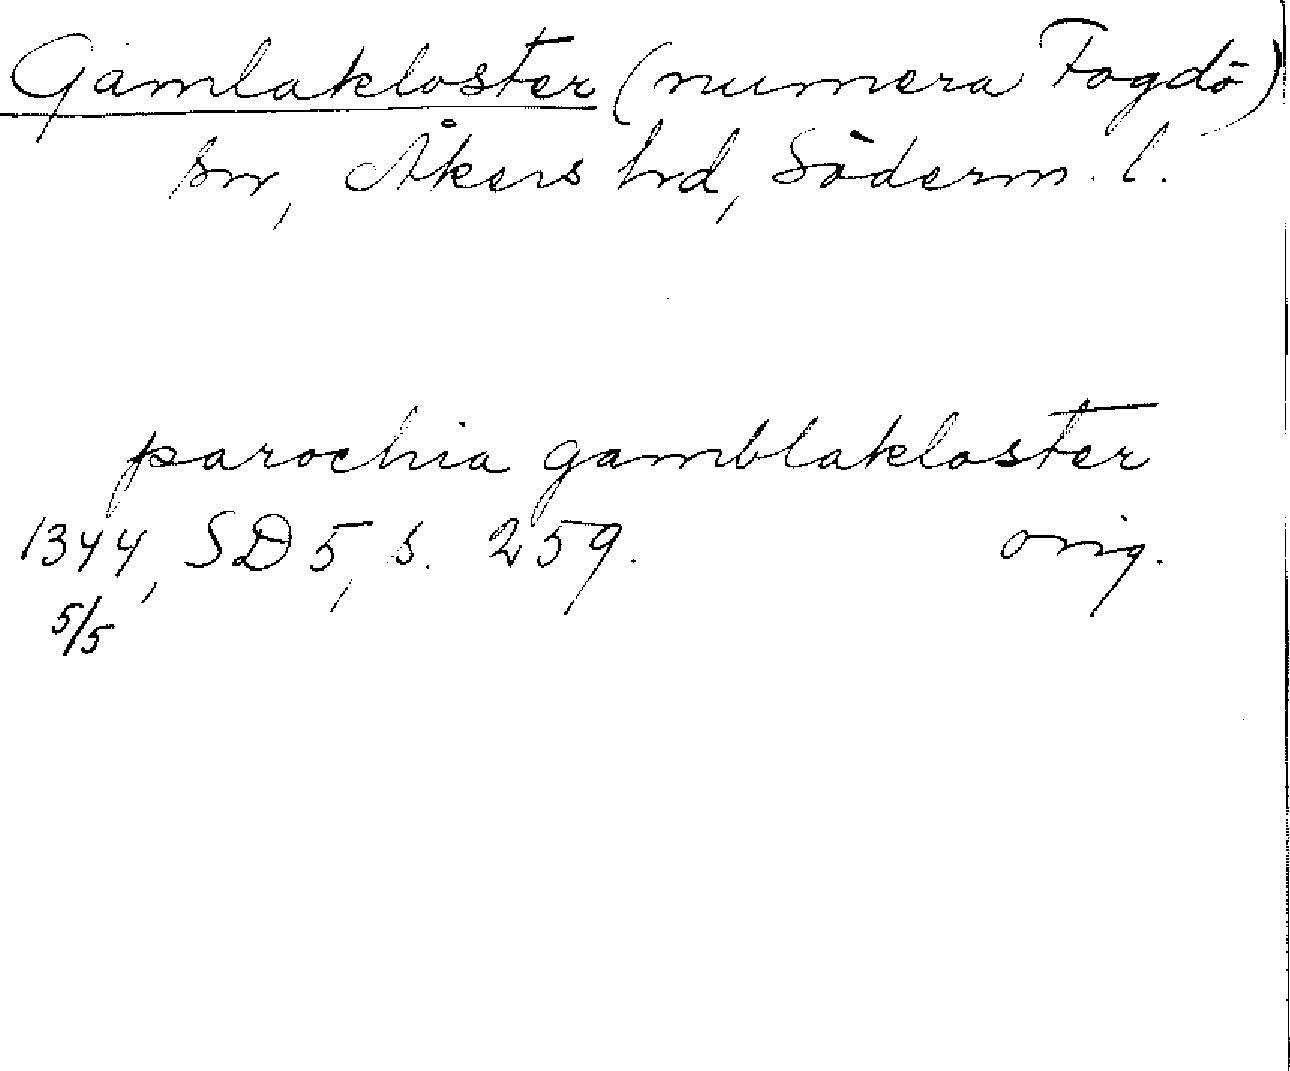 Gamlakloster (numera Fogdö)
sn, Åkers hd, Söderm. l.
parochia gamblakloster
1344, SD 5, s. 259. orig.
5/5